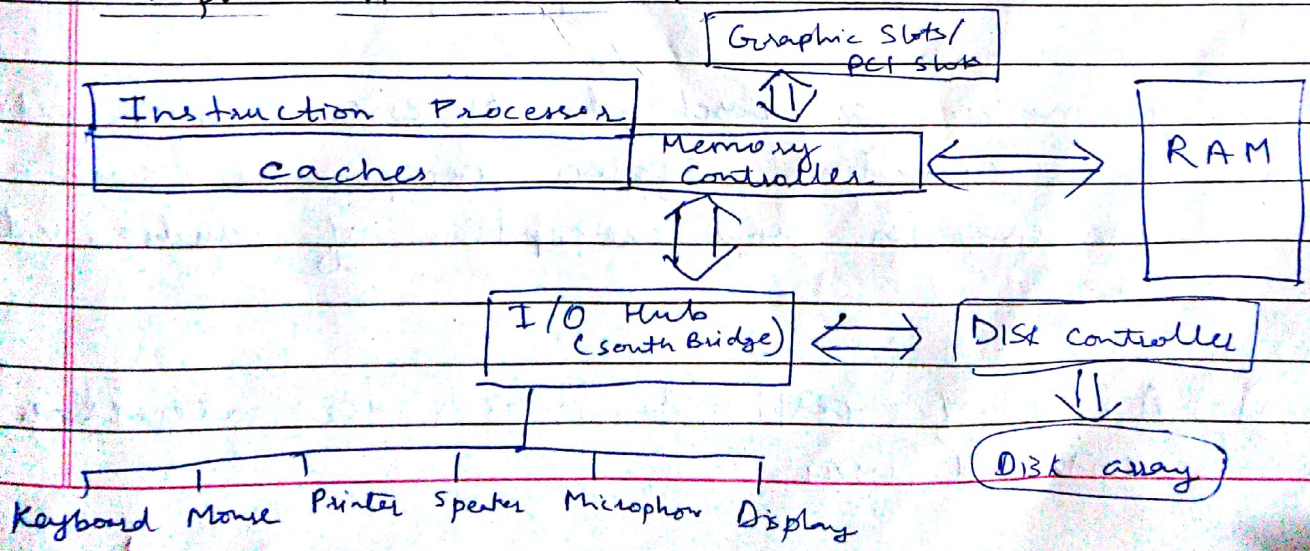 Graphic Slots/
PCI Slots
Instruction Processor
caches
Memory
Controller
RAM
I/O Hub
(South Bridge)
Disk controller
Disk array
Keyboard Mouse Printer Speaker Microphon Display